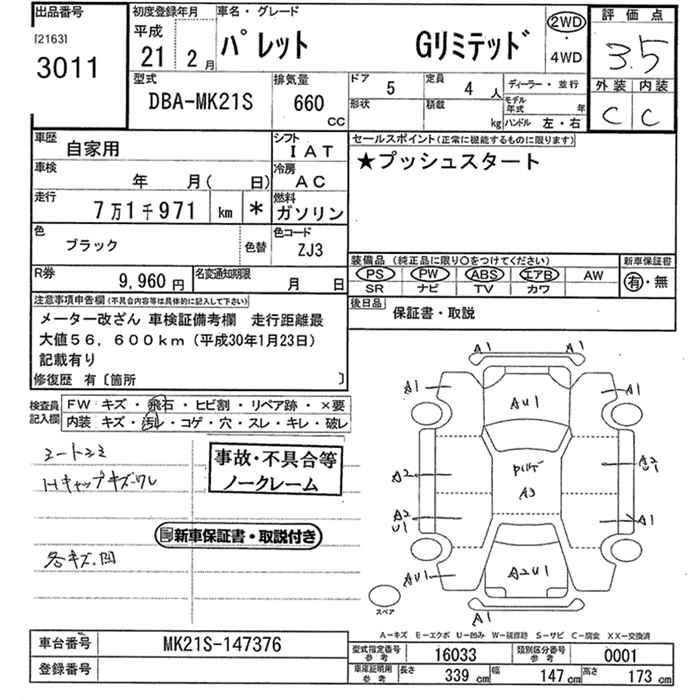 出品番号
[2163]
3011
初度登録年月
平成
21 2月
車名・グレード
パレット Gリミテッド
2WD
・
4WD
評価点
3.5
外装 内装
C C
型式
DBA-MK21S
排気量
660
CC
ドア 5
定員 4 人
ディーラー・並行
形状
積載 kg
モデル年式 年
ハンドル 左・右
車歴 自家用
シフト IAT
車検 年 月( 日)
冷房 AC
走行 7万1千971 km *
燃料 ガソリン
色 ブラック 色替
色コード ZJ3
セールスポイント(正常に機能するものに限ります)
★プッシュスタート
R券 9,960円
名変通知期限 月 日
装備品 (純正品に限り○をつけてください)
PS PW ABS エアB AW
SR ナビ TV カワ
新車保証書
有・無
後日品 保証書・取説
注意事項申告欄(不具合内容等は具体的に記入して下さい)
メーター改ざん 車検証備考欄 走行距離最
大値56,600km(平成30年1月23日)
記載有り
修復歴 有〔箇所 〕
検査員記入欄
FW キズ・飛石・ヒビ割・リペア跡・×要
内装 キズ・汚レ・コゲ・穴・スレ・キレ・破レ
事故・不具合等
ノークレーム
新車保証書・取説付き
各キズ.凹
A1
A1 A1
AU1
A2 A2
U1
A3
A2
U1 A1
AU1 A2U1
A1
スペア
A-キズ E-エクボ U-凹み W-補修跡 S-サビ C-腐食 XX-交換済
車台番号 MK21S-147376
登録番号
型式指定番号 参考 16033
類別区分番号 参考 0001
車庫証明用 参考 長さ 339 cm 幅 147 cm 高さ 173 cm